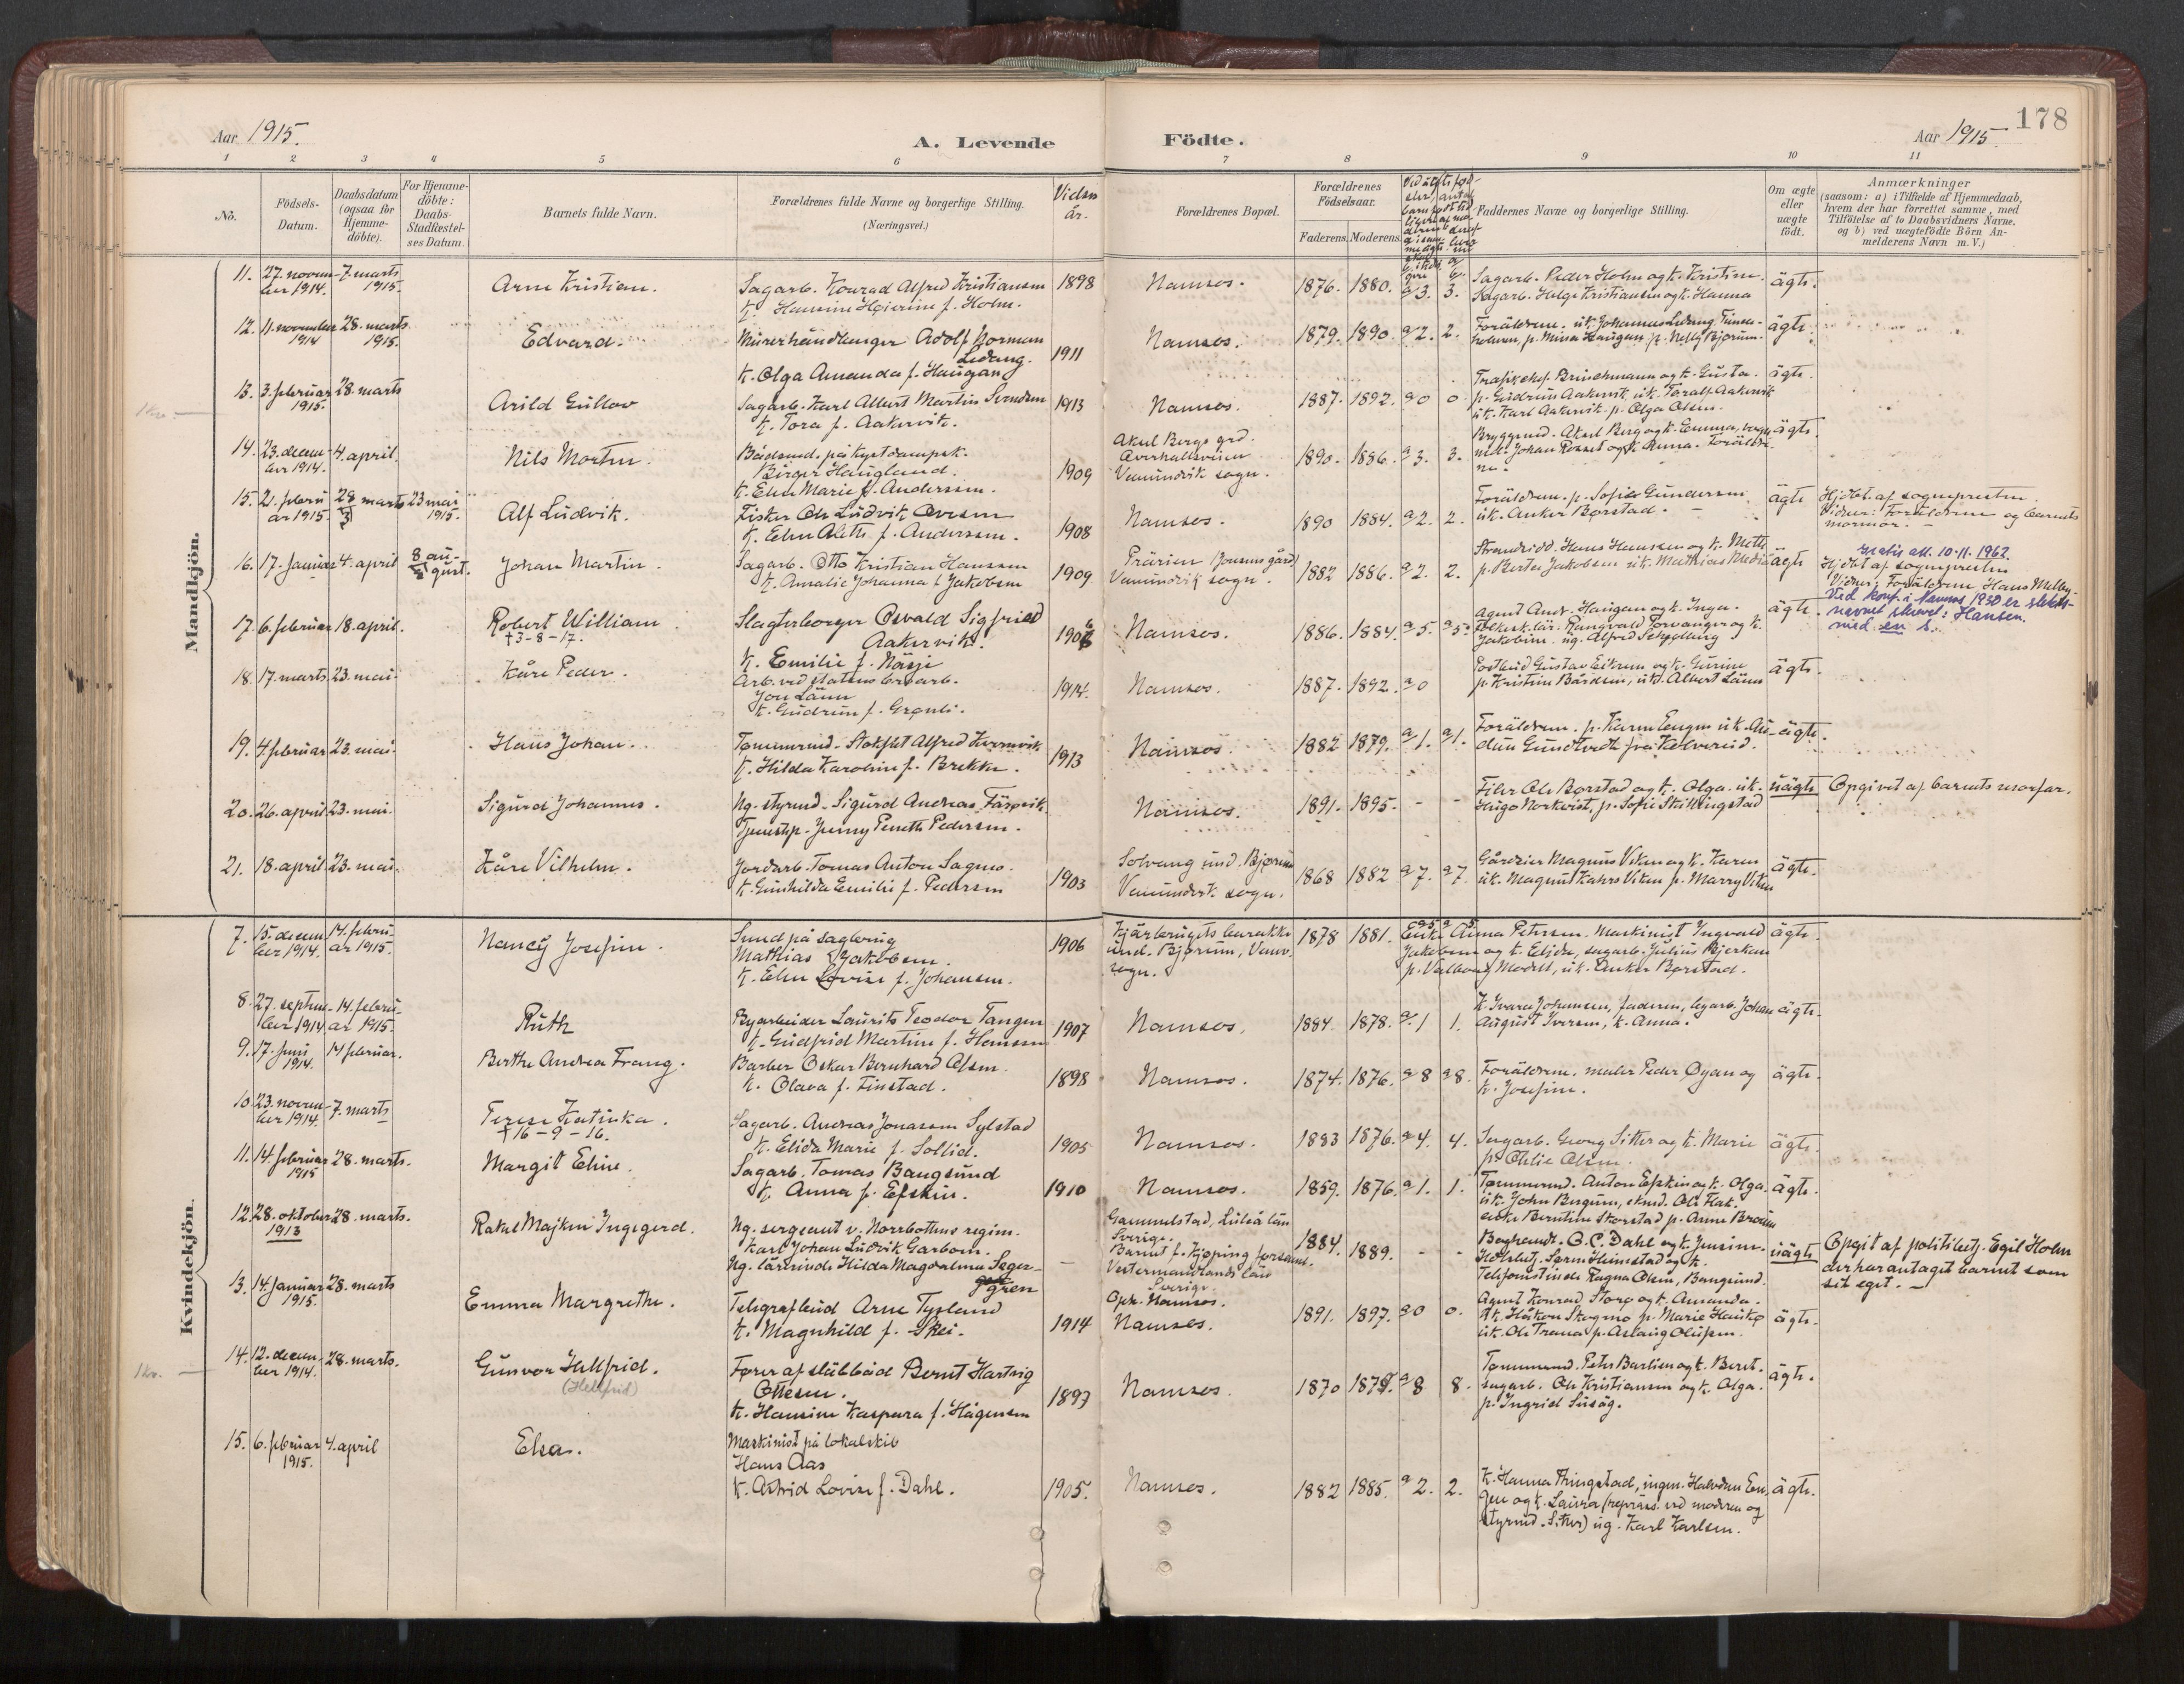 178
Aar 1915.
A. Levende Födte.
Aar 1915.
1 2 3 4 5 6 7 8 9 10 11
No.
Födsels-Datum.
Daabsdatum (ogsaa for Hjemme-döbte).
For Hjemme-döbte: Daabs-Stadfæstel-ses Datum.
Barnets fulde Navn.
Forældrenes fulde Navne og borgerlige Stilling. (Næringsvei.)
Vielses år.
Forældrenes Bopæl.
Forældrenes Födselsaar.
Faderens. Moderens.
Faddernes Navne og borgerlige Stilling.
Om ægte eller uægte födt.
Anmærkninger
(saasom: a) i Tilfælde af Hjemmedaab, hvem der har forrettet samme, med Tilföielse af to Daabsvidners Navne. og b) ved uægtefödte Börn Anmelderens Navn m. V.)
Mandkjön.
11. 27. novem-ber 1914. 7. marts 1915. Arne Kristian.
Sagarb. Konrad Alfred Kristiansen
K. Hansine Heierine f. Holm.
1898 Namsos. 1876. 1880. a 3. 3.
Sagarb. Peder Holm og k. Kristine.
Sagarb. Helge Kristiansen og k. Hanna
ägte.
12. 11. november 1914 28. marts 1915. Edvard.
Murerhåndlanger Adolf Norman Ledang.
K. Olga Amanda f. Haugan
1911 Namsos. 1879. 1890. a 2. 2.
Foräldrene. uk. Johannes Ledang,
p. Minna Haugan p. Nelly Bjørum.
ägte.
13. 3. februar 1915. 28. marts Arild Gullov
Sagarb. Karl Albert Martin Svendsen
K. Tora f. Aakervik.
1913 Namsos. 1887. 1892. a 0 0
Trafikchef. Brinchmann og k. Gusta.
p. Gudrun Aakervik uk. Toralf Aakervik
uk. Karl Aakervik. p. Olga Olsen.
ägte.
1 kr. —
14. 23. decem-ber 1914. 4. april. Nils Morten.
Bådsmd. på kystdampsk.
Birger Haugland.
K. Elen Marie f. Andersen.
1909
Aksel Bergs grd.
Vemundvik sogn.
1890. 1886. a 3. 3.
Bryggemd. Aksel Berg og k. Emma,
Johan Rosset og k. Anna. Foräldre-ne.
ägte.
15. 21. febru-ar 1915. 28/3 marts 23 mai 1915. Alf Ludvik.
Fisker Ole Ludvik Oversen
K. Elen Aleth f. Andersen.
1908 Namsos. 1890 1884. a 2. 2.
Foräldrene. p. Sofie Gundersen
uk. Anker Børstad. —
ägte
Hjdbt. af sognepresten.
Vidner: Foräldrene og barnets mormor. —
16. 17. januar 4. april 8 au-gust. Johan Martin.
Sagarb. Otto Kristian Hanssen
K. Amalie Johanna f. Jakobsen
1909
Prärien (Jonsens gård)
Vemundvik sogn.
1882 1886. a 2. 2.
Strandsidd. Hans Hansen og k. Meth.
p. Berte Jakobsen uk. Mathias
ägte
Gratis att. 10-11. 1962.
Hjdbt af sognepresten
Vidner: Foräldrene Hans Melby.
Ved konf. i Namsos 1930 er slekts-navnet skrevet: Hansen.
med en s.
17. 6. februar 18. april. Robert William
† 3-8-17.
Slagterborger Osvald Sigfried Aakervik.
K. Emilie f. Näsje
1906 Namsos. 1886. 1884. a 5. a 5.
Agent Andr. Haugan og k. Inga.
Folkesk.lär. Rangvald Torvanger og k.
Jakobine. ug. Alfred Schjølberg
ägte.
18. 17. marts 23. mai. Kåre Peder.
Arb. ved statens broarb.
Jon Länn
K. Gudrun f. Grønli.
1914. Namsos. 1887. 1892. a 0
Postbud Gustav Eikrem og k. Gurine
p. Kristine Bårdsen, uk. Albert Länn
ägte.
19. 4. februar 23. mai. Hans Johan.
Tømmermd. Alfred
K. Hilda Karoline f. Brekke.
1913 Namsos. 1882 1879. a 1. a 1.
Foräldrene. p. Karen uk. Au-dun Gundtvedt fra Kolvereid.
ägte.
20. 26. april 23. mai. Sigurd Johannes.
Ng. styrmd. Sigurd Andreas Färsvik.
Tjenestep. Jenny Peneth Pedersen.
Namsos. 1891. 1895. - -
Filer Ole Børstad og k. Olga. uk.
Hugo Norkvist, p. Sofie Skillingstad
uägte
Opgivet af barnets morfar.
21. 18. april. 23. mai. Kåre Vilhelm.
Jordarb. Tomas Anton Sagmo.
K. Gunhilda Emilie f. Pedersen
1903
Solvang und. Bjørum
Vemundvk. sogn.
1868 1882 a 7. a 7
Gårdeier Magnus Viken og k. Karen
uk. Magnus Kahrs Viken p. Marry Viken
ägte.
Kvindekjön.
7. 15. decem-ber 1914. 14. febru-ar 1915. Nancy Josefine.
Smed på sagbrug
Mathias Jakobsen.
K. Elen Lovise f. Johansen.
1906
Kjärbrugets barakke
und. Bjørum, Vemv. sogn.
1878 1881. a 5 a 5
Enke Anna Petersen. Maskinist Ingvald
Jakobsen og k. Elida, sagarb. Julius Bjerken
p. Valborg Modell, uk. Anker Børstad.
ägte.
8. 27. septem-ber 1914. 14. febru-ar 1915. Ruth
Byarbeider Laurits Teodor Tangen
K. Gudfrid Martine f. Hansen
1907 Namsos. 1884. 1878. a 1 1.
K. Ivara Johansen, faderen, byarb. Johan
August Iversen, k. Anna.
ägte.
9. 17. juni 1914. 14 februar. Berthe Andrea Frang.
Barber Oskar Bernhard Olsen.
K. Olava f. Finstad.
1898 Namsos. 1874. 1876. a 8 a 8.
Foräldrene. maler Peder Oyan og
k. Josefine.
ägte.
10. 23. novem-ber 1914. 7. marts Terese Katinka.
† 16-9-16.
Sagarb. Andreas Jonassen Sylstad
K. Elida Marie f. Sollid.
1905 Namsos. 1883 1876. a 4. 4.
Sagarb. Georg Sither og k. Marie
p. Othlie Olsen.
ägte.
11. 14. februar 1915 28. marts. Margit Eline.
Sagarb. Tomas Bangsund
K. Anna f. Efskin.
1910 Namsos. 1859. 1876. a 1. 1.
Tømmermd. Anton Efskin og k. Olga.
uk. John Bergum, skmd. Ole Flak.
enke Berntine Skorstad p. Anne Broum
ägte.
12. 28. oktober 1913 28. marts. Rakel Majken Ingegerd.
Ng. sergeant v. Norrbottens regim.
Karl Johan Ludvik Garbom.
Ng. lärerinde Hilda Magdalena Seger-gren
—
Gammelstad, Luleå län Sverige.
Barnet f. Kjøping forsaml.
Vestermandlands län Sverige.
Oph. Namsos.
1884. 1889. - -
Boghandl. O. C. Dahl og k. Jensine.
Hotelbetj. Søren Heimstad og k.
Telefonistinde Ragna Olsen, Bangsund.
uägte
Opgit af politibetj. Egil Holm
der har antaget barnet som
sit eget. —
13. 14. januar 1915. 28. marts Emma Margrethe.
Telegrafbud Arne Tysland
K. Magnhild f. Skei.
1914 Namsos. 1891. 1897. a 0 0.
Agent Konrad Storø og k. Amanda.
uk. Håkon Skogmo p. Marie Hauko
uk. Ole Trana p. Aslaug Olufsen.
ägte.
14. 12. decem-ber 1914. 28. marts. Gunvor Hellfrid.
(Hellfrid)
Fører af släbbåd Bernt Hartvig
Ottesen.
K. Hansine Kaspara f. Hågensen
1897 Namsos. 1870 1879. a 8 8.
Tømmermd. Peter Barlien og k. Beret.
sagarb. Ole Kristiansen og k. Olga.
p. Ingrid Lusåg.
ägte.
1 kr. —
15. 6. februar 1915. 4. april Elsa.
Maskinist på lokalskib
Hans Aas
K. Astrid Lovise f. Dahl.
1905. Namsos. 1882 1885. a 2. 2.
K. Hanna Tringstad, ingen. Halvdan En-
gen og k. Laura (repräs. ved moderen og
styrmd. Sither) ug. Karl Karlsen.
ägte.